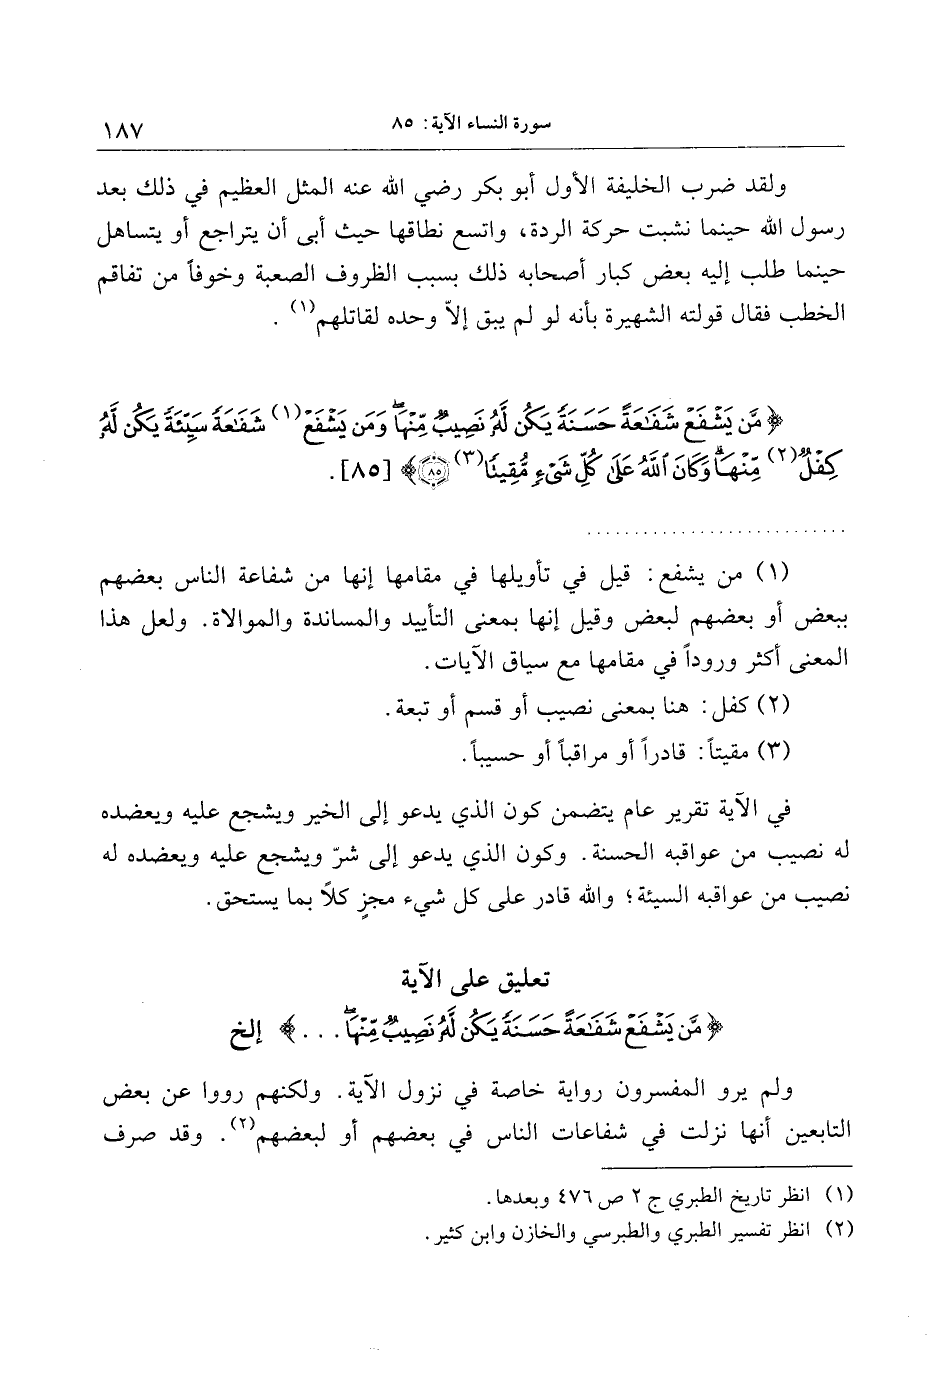 سورة النساء الآية: ٨٥
١٨٧
ولقد ضرب الخليفة الأول أبو بكر رضي الله عنه المثل العظيم في ذلك بعد
رسول الله حينما نشبت حركة الردة، واتسع نطاقها حيث أبى أن يتراجع أو يتساهل
حينما طلب إليه بعض كبار أصحابه ذلك بسبب الظروف الصعبة وخوفاً من تفاقم
الخطب فقال قولته الشهيرة بأنه لو لم يبق إلاّ وحده لقاتلهم(١) .
﴿ مَّن يَشْفَعْ شَفَٰعَةً حَسَنَةً يَكُن لَّهُۥ نَصِيبٌ مِّنْهَاۖ وَمَن يَشْفَعْ(١) شَفَٰعَةً سَيِّئَةً يَكُن لَّهُۥ
كِفْلٌ(٢) مِّنْهَاۗ وَكَانَ ٱللَّهُ عَلَىٰ كُلِّ شَىْءٍ مُّقِيتًا(٣) ٨٥ ﴾ [٨٥].
(١) من يشفع: قيل في تأويلها في مقامها إنها من شفاعة الناس بعضهم
ببعض أو بعضهم لبعض وقيل إنها بمعنى التأييد والمساندة والموالاة. ولعل هذا
المعنى أكثر وروداً في مقامها مع سياق الآيات.
(٢) كفل: هنا بمعنى نصيب أو قسم أو تبعة.
(٣) مقيتاً: قادراً أو مراقباً أو حسيباً.
في الآية تقرير عام يتضمن كون الذي يدعو إلى الخير ويشجع عليه ويعضده
له نصيب من عواقبه الحسنة. وكون الذي يدعو إلى شرّ ويشجع عليه ويعضده له
نصيب من عواقبه السيئة؛ والله قادر على كل شيء مجزٍ كلاً بما يستحق.
تعليق على الآية
﴿ مَّن يَشْفَعْ شَفَٰعَةً حَسَنَةً يَكُن لَّهُۥ نَصِيبٌ مِّنْهَاۖ . . . ﴾ إلخ
ولم يرو المفسرون رواية خاصة في نزول الآية. ولكنهم رووا عن بعض
التابعين أنها نزلت في شفاعات الناس في بعضهم أو لبعضهم(٢). وقد صرف
(١) انظر تاريخ الطبري ج ٢ ص ٤٧٦ وبعدها.
(٢) انظر تفسير الطبري والطبرسي والخازن وابن كثير.